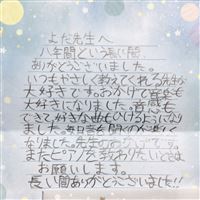 よだ先生へ
八年間という長い間
ありがとうございました。
いつもやさしく教えてくれる先生が
大好きです。おかげで音楽も
大好きになりました。音感も
できて好きな曲もひけるようになり
ました。音を聞くのが楽しく
なりました。先生のおかげです。
またピアノを教わりたいときは
お願いします。
長い間ありがとうございました!!